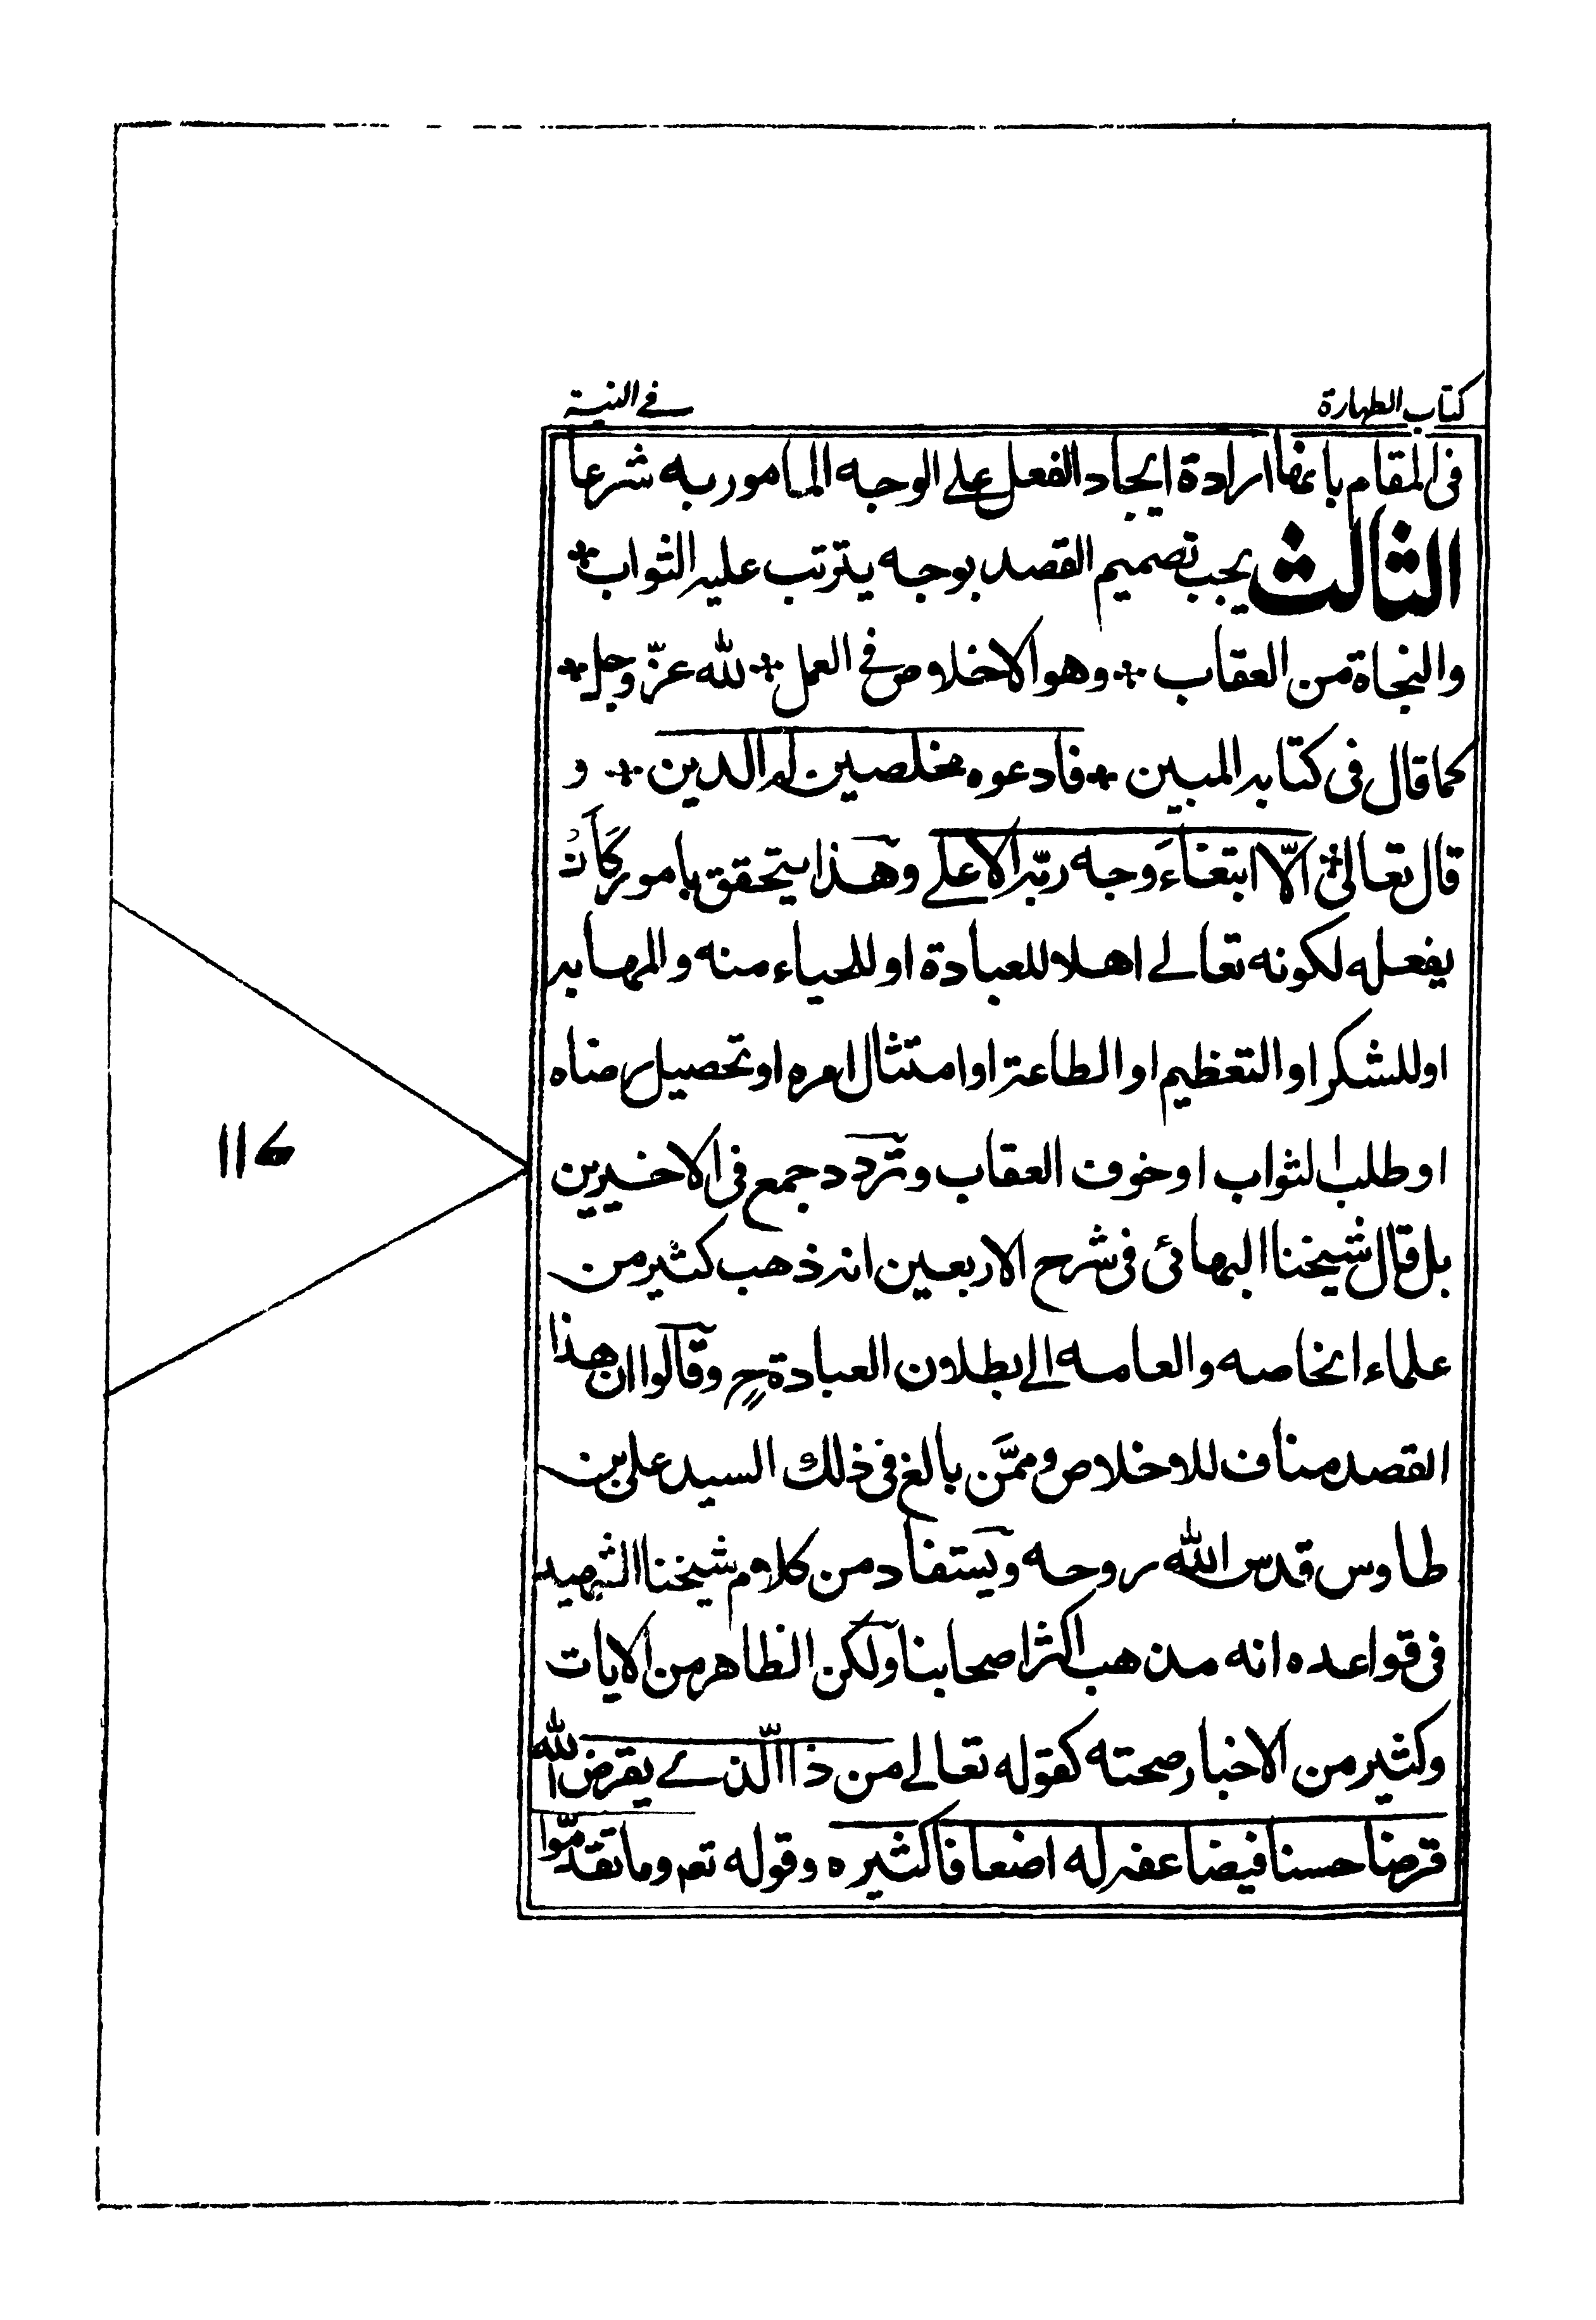 كتاب الطهارة في النية
في المقام بانها ارادة ايجاد الفعل على الوجه المامور به شرعا
الثالث يجب تصميم القصد بوجه يترتب عليه الثواب *
والنجاة من العقاب * وهو الاخلاص في العمل * لله عزّ وجل *
كما قال في كتابه المبين * فادعوه مخلصين له الدين * و
قال تعالى * الّا ابتغاءَ وجه ربّه الاعلى وهذا يتحقق بامور كَاَنْ
يفعله لكونه تعالى اهلا للعبادة او للحياء منه والمهابه
او للشكر او التعظيم او الطاعة او امتثال امره او تحصيل رضاه
او طلب الثواب او خوف العقاب وتردد جمع في الاخيرين
بل قال شيخنا البهائي في شرح الاربعين انه ذهب كثير من
علماء الخاصه والعامه الى بطلان العبادة ح وقالوا ان هذا
القصد مناف للاخلاص وممَّن بالغ في ذلك السيد على بن
طاوس قدس الله روحه ويستفاد من كلام شيخنا الشهيد
في قواعده انه مذهب اكثر اصحابنا ولكن الظاهر من الايات
وكثير من الاخبار صحته كقوله تعالى من ذا الّذي يقرض الله
قرضا حسنا فيضاعفه له اضعافا كثيره وقوله تعم وما تقدّموا
١١٦